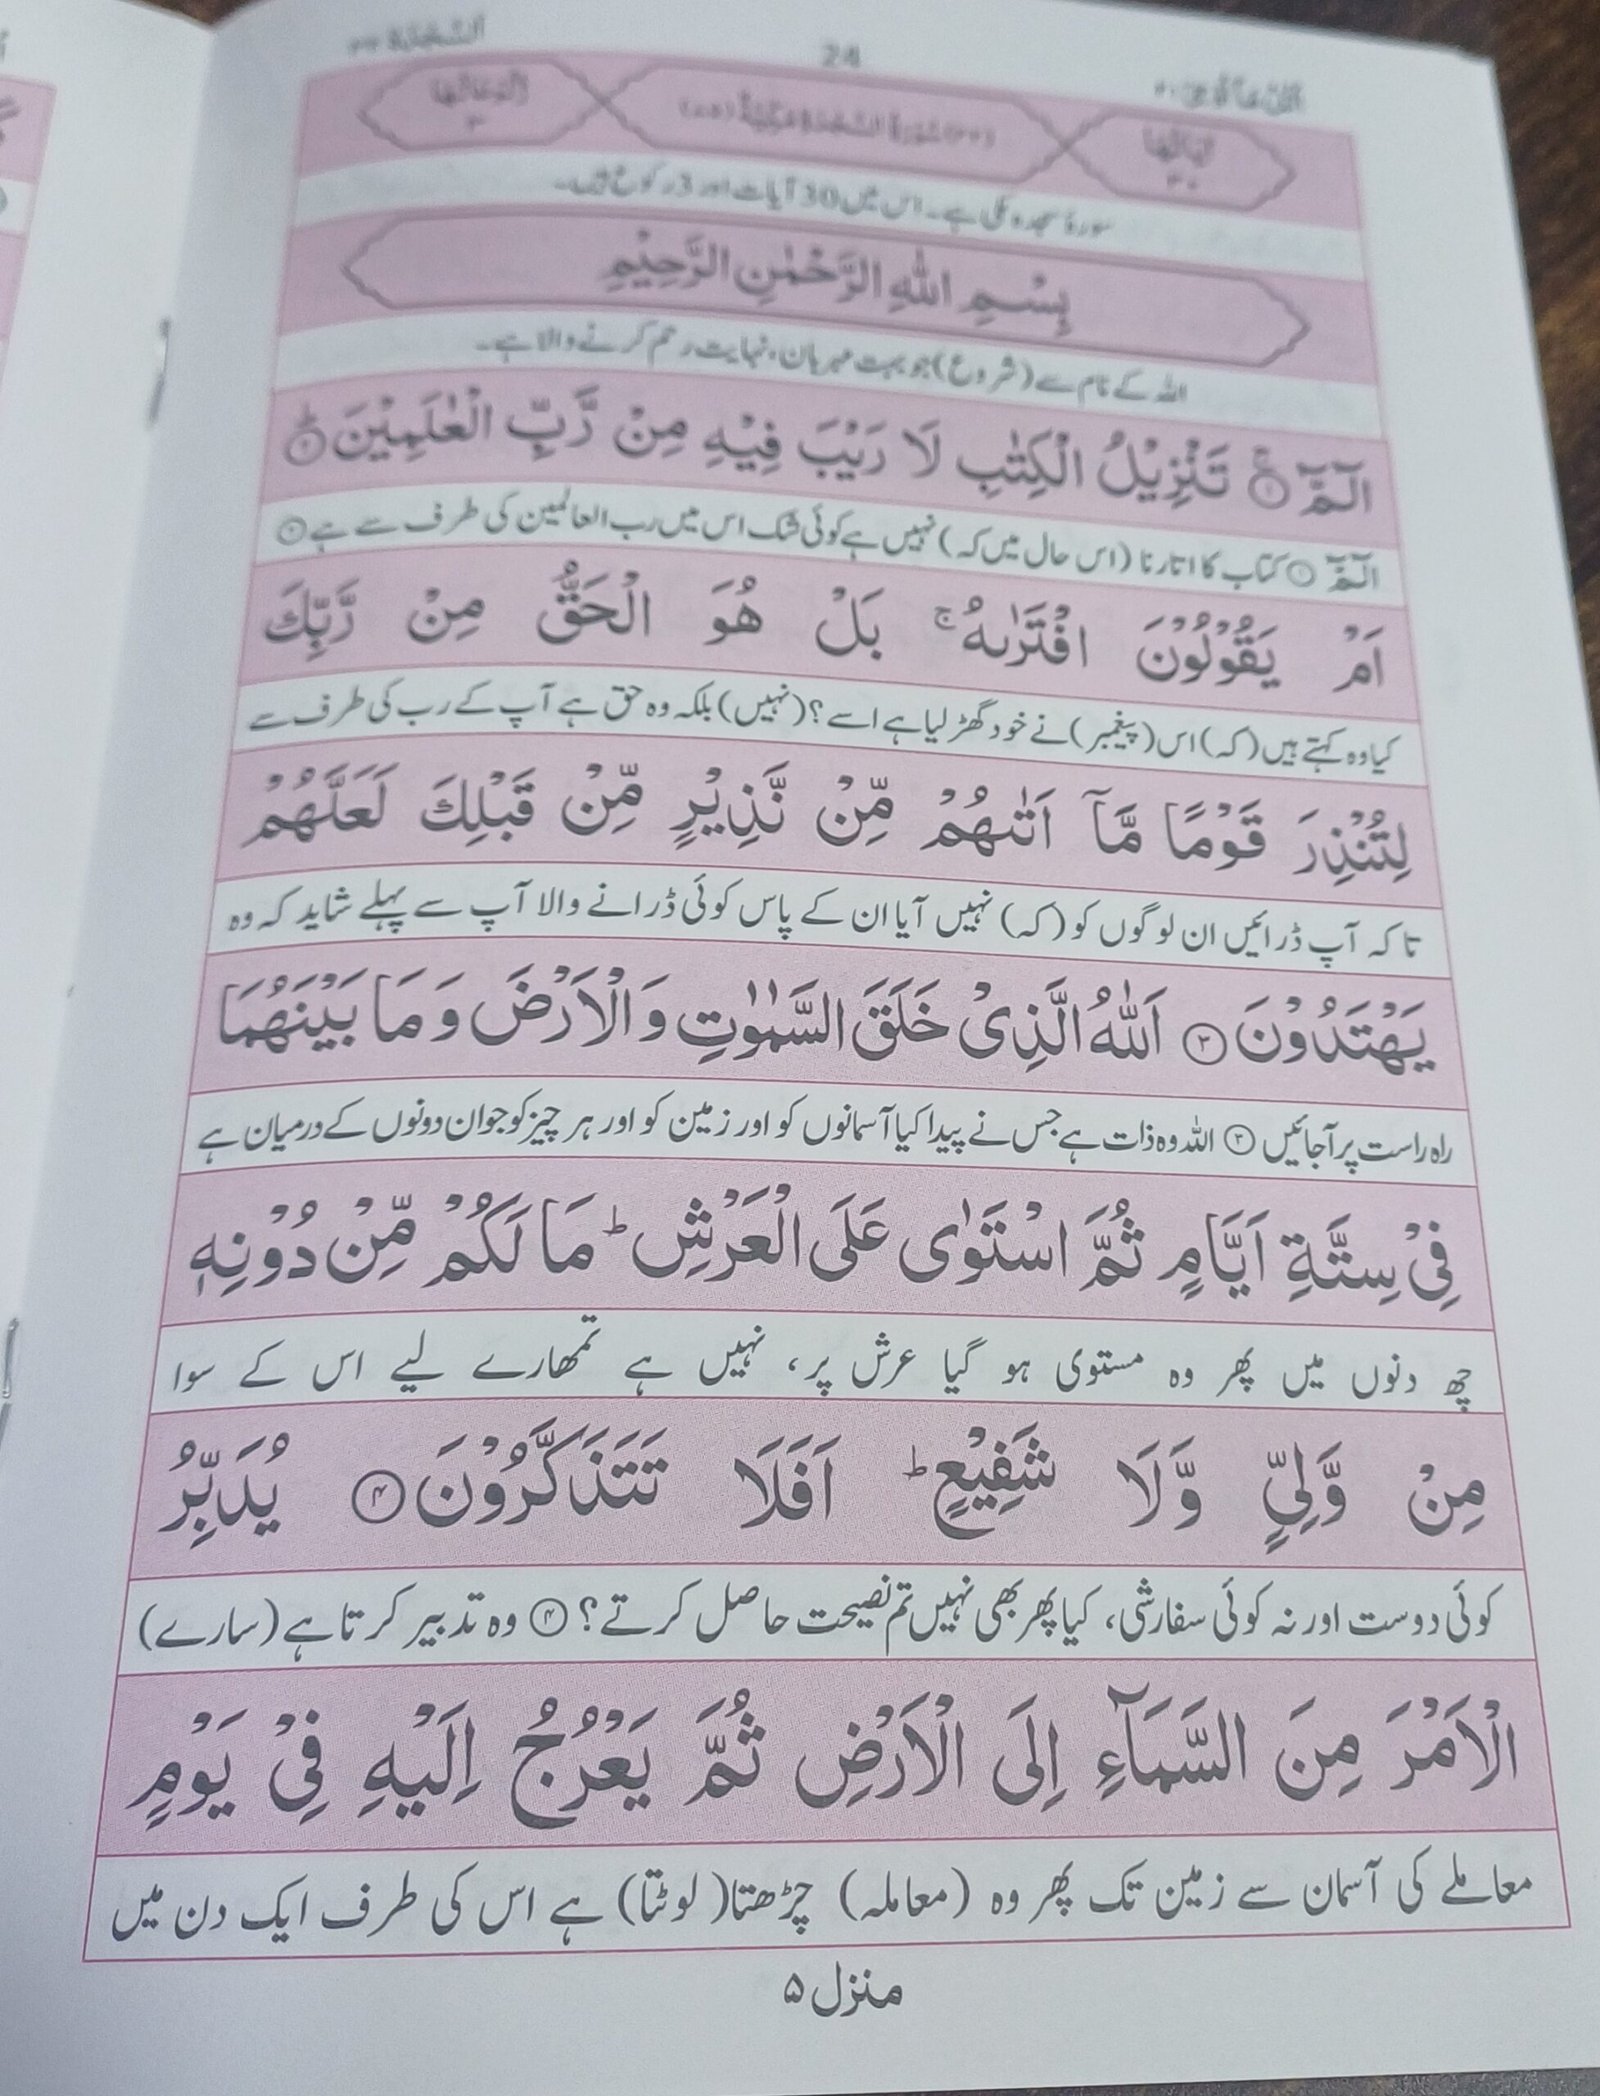 السَّجْدَة ٣٢
24
اُتْلُ مَآ اُوْحِیَ ٢١
رُكُوْعَاتُهَا ٣
(٣٢) سُوْرَةُ السَّجْدَةِ مَكِّيَّةٌ (٧٥)
اٰيَاتُهَا ٣٠
سورۂ سجدہ مکی ہے۔ اس میں 30 آیات اور 3 رکوع ہیں۔
بِسْمِ اللّٰهِ الرَّحْمٰنِ الرَّحِيْمِ
اللہ کے نام سے (شروع) جو بہت مہربان، نہایت رحم کرنے والا ہے۔
الٓمّٓ ۚ﴿١﴾ تَنْزِيْلُ الْكِتٰبِ لَا رَيْبَ فِيْهِ مِنْ رَّبِّ الْعٰلَمِيْنَ ؕ﴿٢﴾
الٓمّٓ ① کتاب کا اتارنا (اس حال میں کہ) نہیں ہے کوئی شک اس میں رب العالمین کی طرف سے ہے ②
اَمْ يَقُوْلُوْنَ افْتَرٰىهُ ۚ بَلْ هُوَ الْحَقُّ مِنْ رَّبِّكَ
کیا وہ کہتے ہیں (کہ) اس (پیغمبر) نے خود گھڑ لیا ہے اسے؟ (نہیں) بلکہ وہ حق ہے آپ کے رب کی طرف سے
لِتُنْذِرَ قَوْمًا مَّآ اَتٰىهُمْ مِّنْ نَّذِيْرٍ مِّنْ قَبْلِكَ لَعَلَّهُمْ
تا کہ آپ ڈرائیں ان لوگوں کو (کہ) نہیں آیا ان کے پاس کوئی ڈرانے والا آپ سے پہلے شاید کہ وہ
يَهْتَدُوْنَ ﴿٣﴾ اَللّٰهُ الَّذِيْ خَلَقَ السَّمٰوٰتِ وَالْاَرْضَ وَمَا بَيْنَهُمَا
راہ راست پر آجائیں ③ اللہ وہ ذات ہے جس نے پیدا کیا آسمانوں کو اور زمین کو اور ہر چیز کو جو ان دونوں کے درمیان ہے
فِيْ سِتَّةِ اَيَّامٍ ثُمَّ اسْتَوٰى عَلَى الْعَرْشِ ؕ مَا لَكُمْ مِّنْ دُوْنِهٖ
چھ دنوں میں پھر وہ مستوی ہو گیا عرش پر، نہیں ہے تمھارے لیے اس کے سوا
مِنْ وَّلِيٍّ وَّلَا شَفِيْعٍ ؕ اَفَلَا تَتَذَكَّرُوْنَ ﴿٤﴾ يُدَبِّرُ
کوئی دوست اور نہ کوئی سفارشی، کیا پھر بھی نہیں تم نصیحت حاصل کرتے؟ ④ وہ تدبیر کرتا ہے (سارے)
الْاَمْرَ مِنَ السَّمَآءِ اِلَى الْاَرْضِ ثُمَّ يَعْرُجُ اِلَيْهِ فِيْ يَوْمٍ
معاملے کی آسمان سے زمین تک پھر وہ (معاملہ) چڑھتا (لوٹتا) ہے اس کی طرف ایک دن میں
منزل ۵